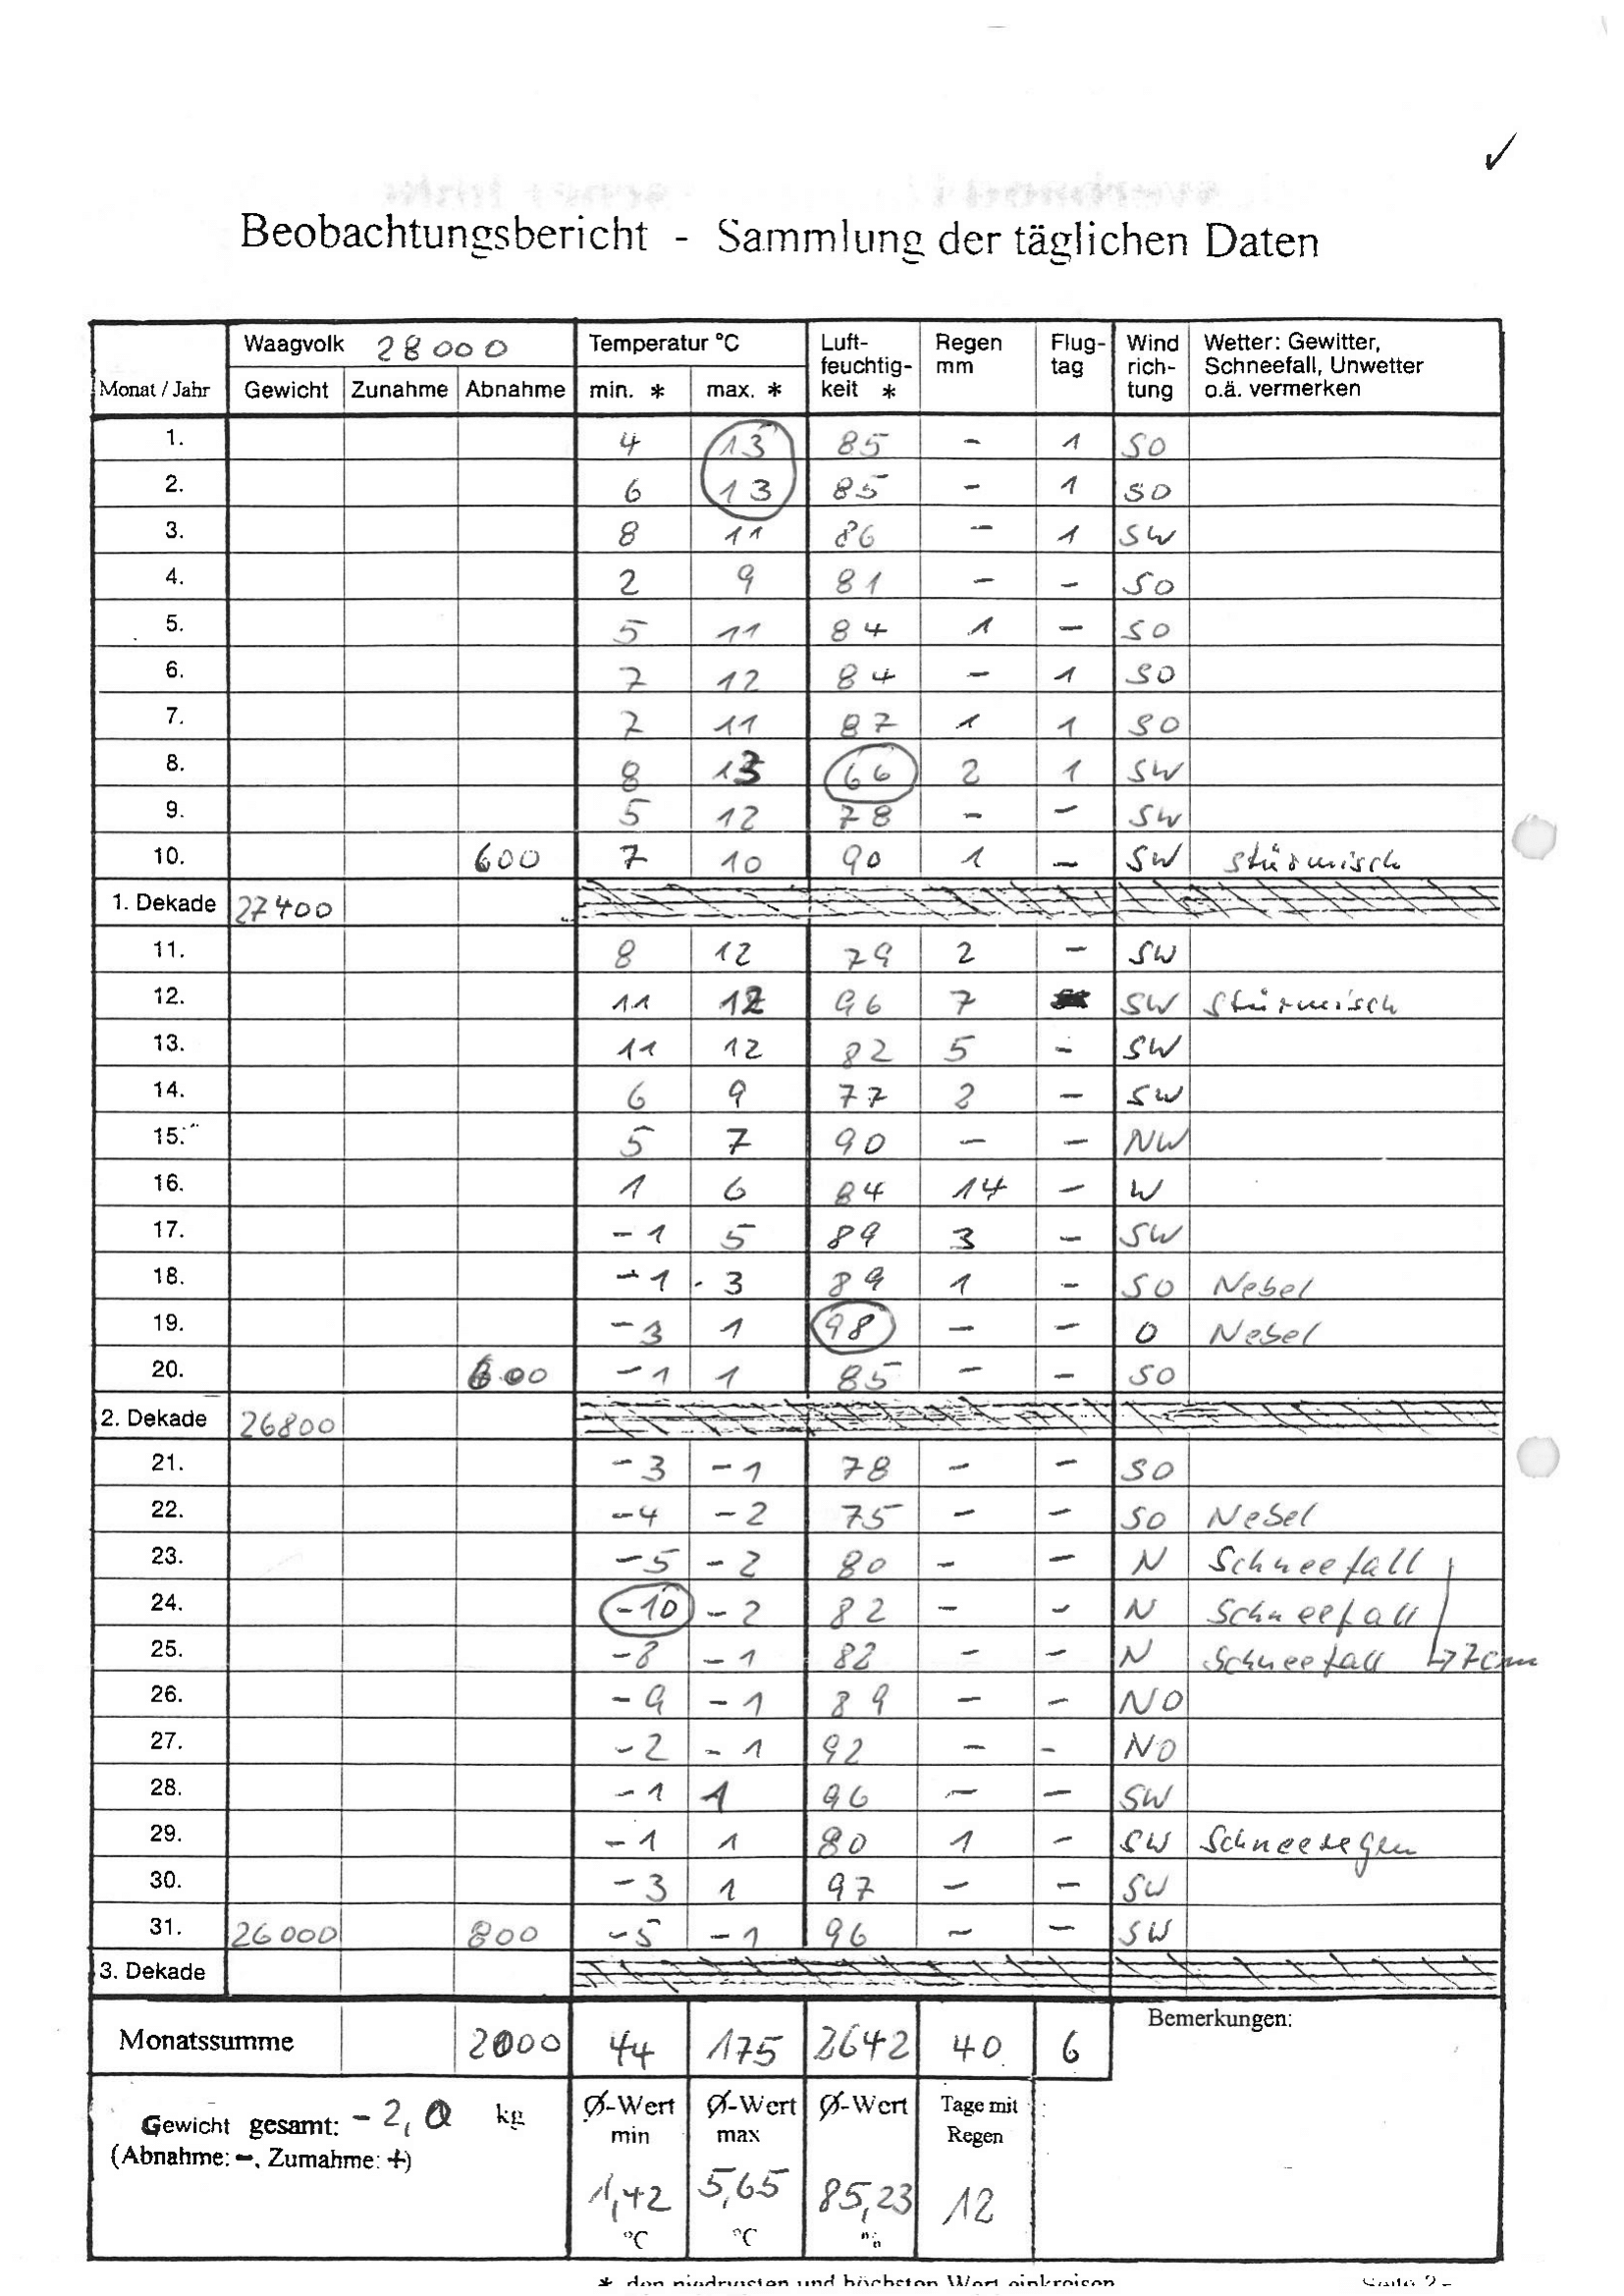 Beobachtungsbericht - Sammlung der täglichen Daten
Monat / Jahr Waagvolk 28000 Temperatur °C Luft-feuchtig-keit * Regen mm Flug-tag Wind rich-tung Wetter: Gewitter, Schneefall, Unwetter o.ä. vermerken
Gewicht Zunahme Abnahme min. * max. *
1. 4 13 85 - 1 SO
2. 6 13 85 - 1 SO
3. 8 11 86 - 1 SW
4. 2 9 81 - - SO
5. 5 11 84 1 - SO
6. 7 12 84 - 1 SO
7. 7 11 87 1 1 SO
8. 8 13 66 2 1 SW
9. 5 12 78 - - SW
10. 600 7 10 90 1 - SW stürmisch
1. Dekade 27400
11. 8 12 79 2 - SW
12. 11 12 96 7 SW stürmisch
13. 11 12 82 5 - SW
14. 6 9 77 2 - SW
15. 5 7 90 - - NW
16. 1 6 84 14 - W
17. -1 5 89 3 - SW
18. -1 3 89 1 - SO Nebel
19. -3 1 98 - - O Nebel
20. 600 -1 1 85 - - SO
2. Dekade 26800
21. -3 -1 78 - - SO
22. -4 -2 75 - - SO Nebel
23. -5 -2 80 - - N Schneefall
24. -10 -2 82 - - N Schneefall
25. -8 -1 82 - - N Schneefall ↳ 7cm
26. -9 -1 89 - - NO
27. -2 -1 92 - - NO
28. -1 1 96 - - SW
29. -1 1 80 1 - SW Schneeregen
30. -3 1 97 - - SW
31. 26000 800 -5 -1 96 - - SW
3. Dekade
Monatssumme 2000 44 175 2642 40 6 Bemerkungen:
Gewicht gesamt: -2,0 kg
(Abnahme: -, Zumahme: +)
Ø-Wert min Ø-Wert max Ø-Wert Tage mit Regen
1,42 5,65 85,23 12
°C °C %
* den niedrigsten und höchsten Wert einkreisen Seite 2 -